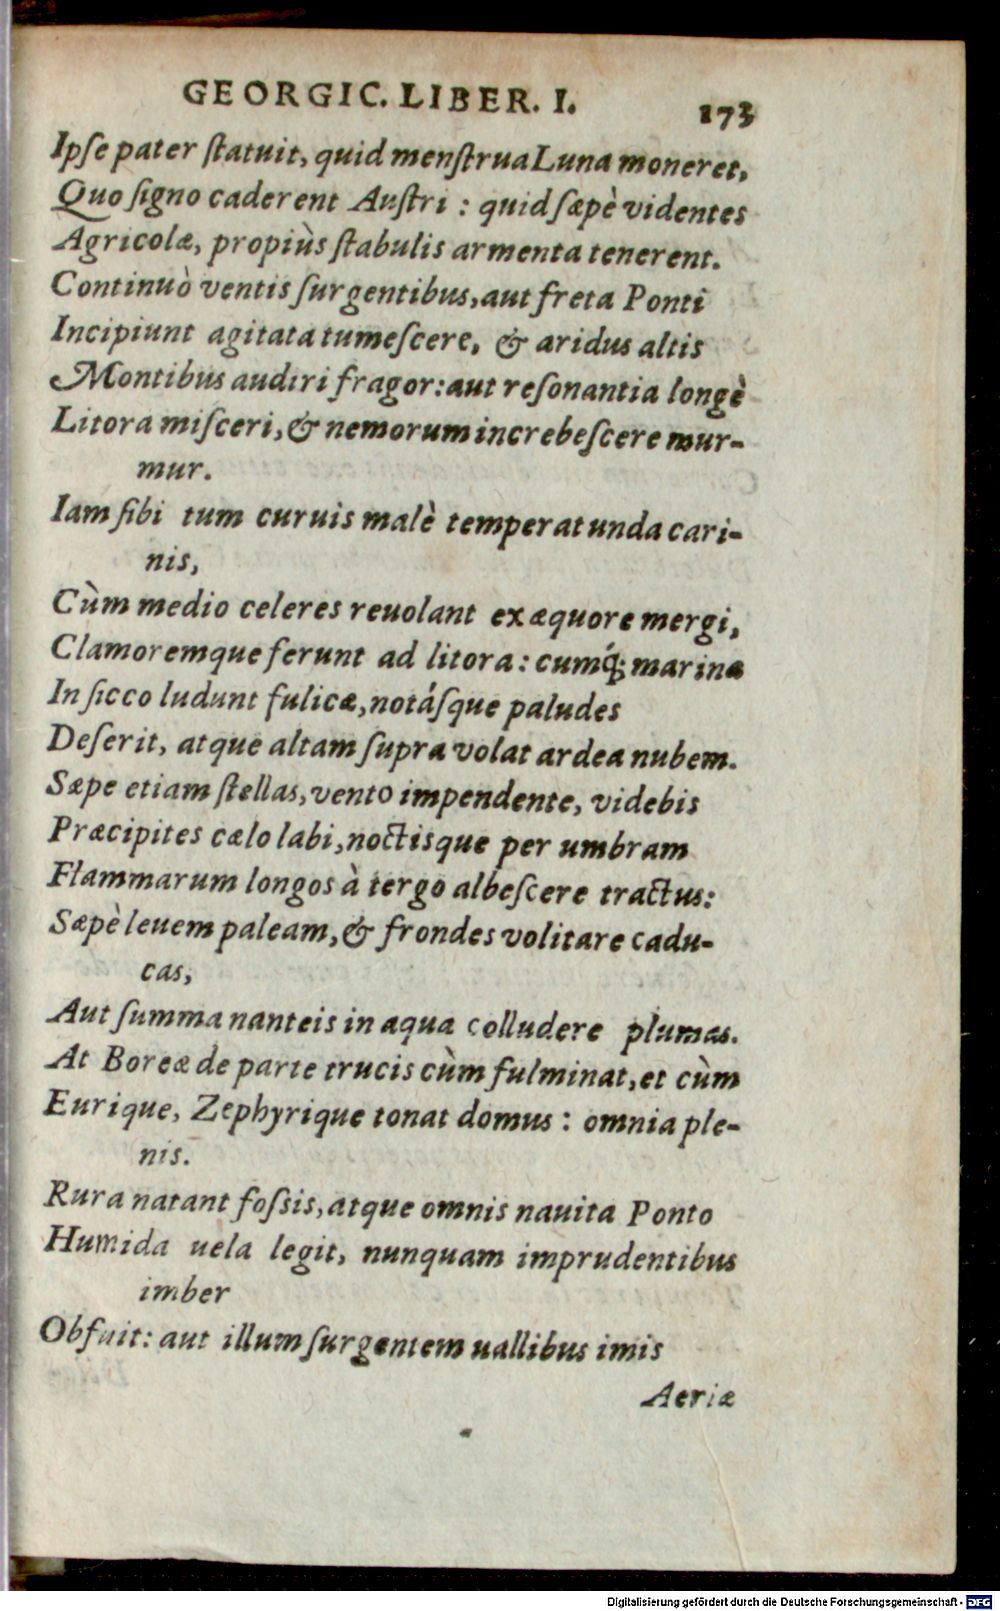 GEORGIC. LIBER. I. 173
Ipſe pater ſtatuit, quid menſtrua Luna moneret,
Quo ſigno caderent Auſtri : quid ſæpè videntes
Agricolæ, propiùs ſtabulis armenta tenerent.
Continuò ventis ſurgentibus, aut freta Ponti
Incipiunt agitata tumeſcere, & aridus altis
Montibus audiri fragor: aut reſonantia longè
Litora miſceri, & nemorum increbeſcere mur-
mur.
Iam ſibi tum curuis malè temperat unda cari-
nis,
Cùm medio celeres reuolant ex æquore mergi,
Clamoremque ferunt ad litora: cumq́; marinæ
In ſicco ludunt fulicæ, notáſque paludes
Deſerit, atque altam ſupra volat ardea nubem.
Sæpe etiam ſtellas, vento impendente, videbis
Præcipites cælo labi, noctisque per umbram
Flammarum longos à tergo albeſcere tractus:
Sæpè leuem paleam, & frondes volitare cadu-
cas,
Aut ſumma nanteis in aqua colludere plumas.
At Boreæ de parte trucis cùm fulminat, et cùm
Eurique, Zephyrique tonat domus : omnia ple-
nis.
Rura natant foſsis, atque omnis nauita Ponto
Humida uela legit, nunquam imprudentibus
imber
Obfuit: aut illum ſurgentem uallibus imis
Aeriæ
Digitalisierung gefördert durch die Deutsche Forschungsgemeinschaft - DFG